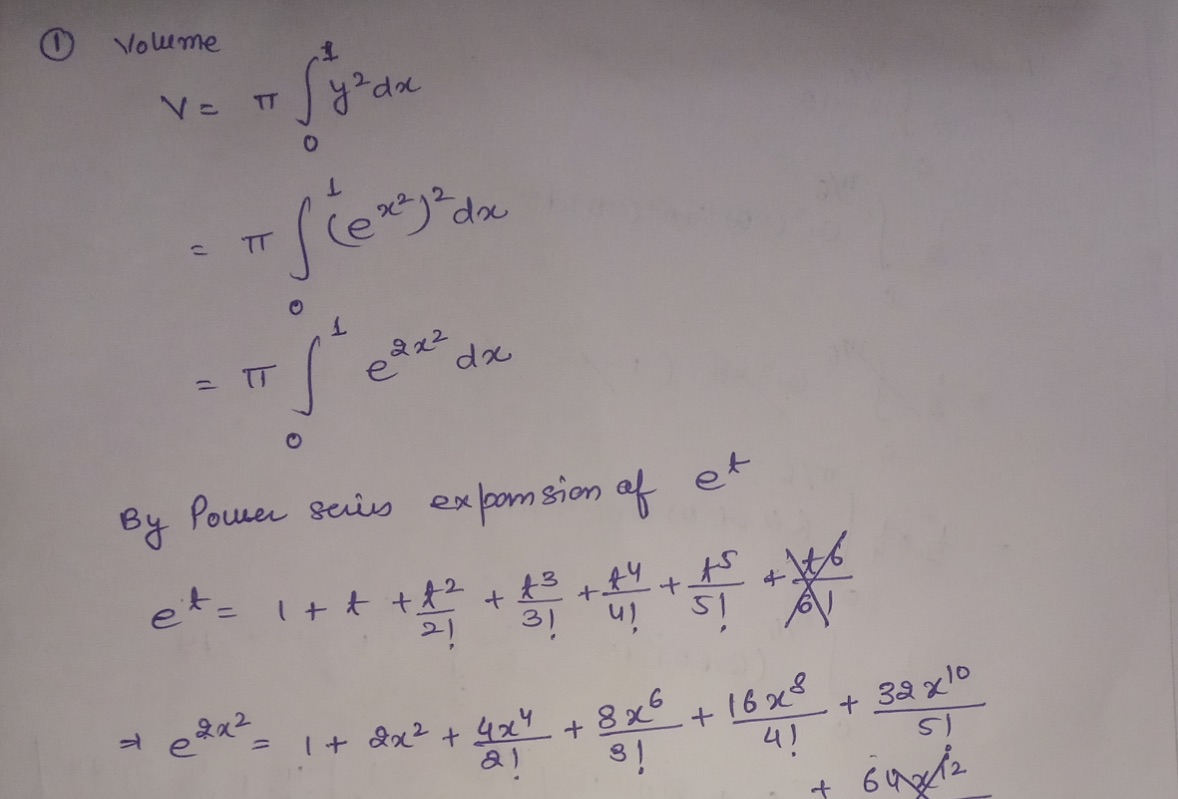 ① Volume
V = π ∫₀¹ y² dx
= π ∫₀¹ (e^{x²})² dx
= π ∫₀¹ e^{2x²} dx
By Power series expansion of e^t
e^t = 1 + t + t²/2! + t³/3! + t⁴/4! + t⁵/5! + t⁶/6!
⇒ e^{2x²} = 1 + 2x² + 4x⁴/2! + 8x⁶/3! + 16x⁸/4! + 32x¹⁰/5!
+ 64x¹²